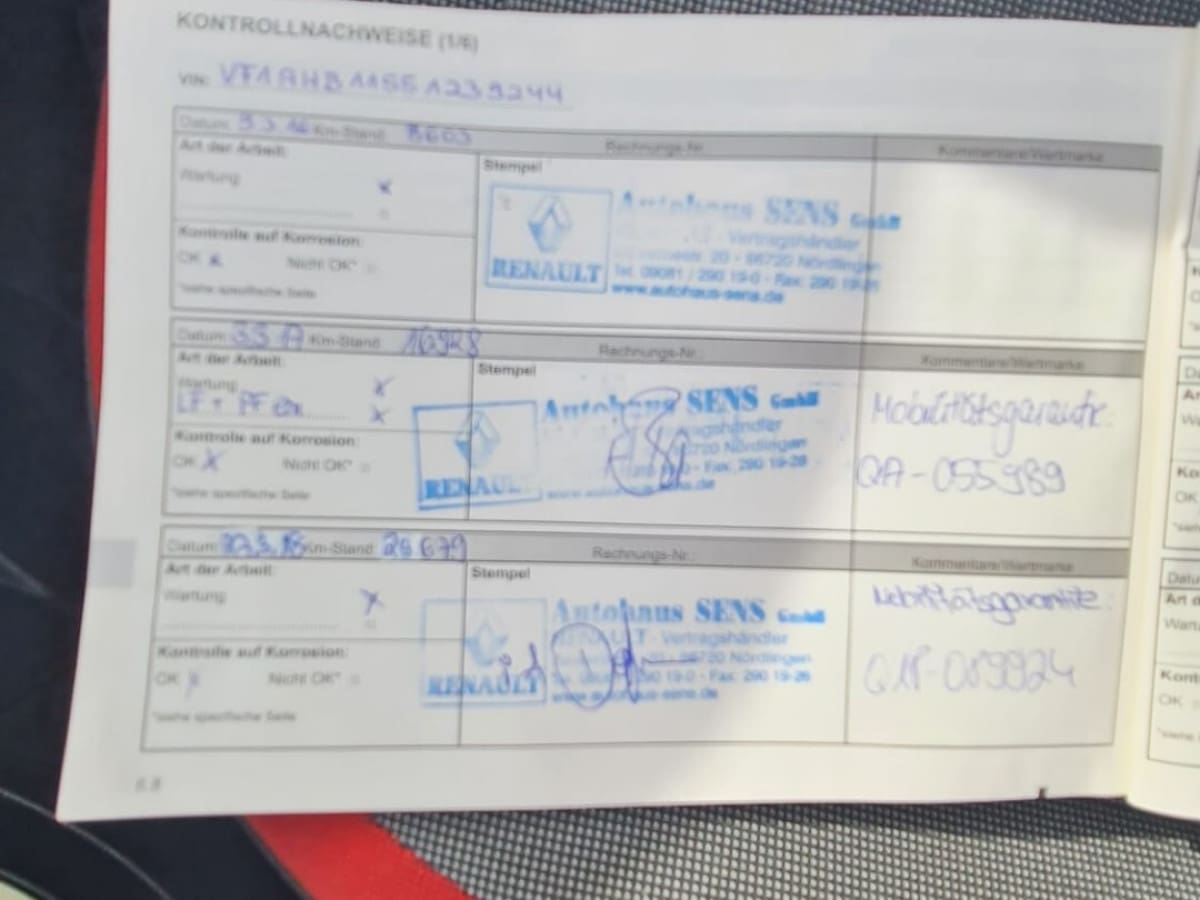 KONTROLLNACHWEISE (1/6)
VIN: VF1AHB1155 1239244
Datum: 9.3.16 Km-Stand: 8603 Rechnungs-Nr.: Kommentare/Wertmarke
Art der Arbeit:
Wartung x
Stempel
Kontrolle auf Korrosion:
OK x Nicht OK*
*siehe spezifische Seite
RENAULT
Autohaus SENS GmbH
Vertragshändler
20 - 86720 Nördlingen
Tel. 09081 / 290 19-0 - Fax: 290 19-26
www.autohaus-sens.de
Datum: Km-Stand: 16928 Rechnungs-Nr.: Kommentare/Wertmarke
Art der Arbeit:
Wartung x
LF + PF x
Stempel
Kontrolle auf Korrosion:
OK x Nicht OK*
*siehe spezifische Seite
RENAULT
Autohaus SENS GmbH
Vertragshändler
86720 Nördlingen
Fax: 290 19-26
Mobilitätsgarantie:
QA-055989
Datum: Km-Stand: 26679 Rechnungs-Nr.: Kommentare/Wertmarke
Art der Arbeit:
Wartung x
Stempel
Kontrolle auf Korrosion:
OK x Nicht OK*
*siehe spezifische Seite
RENAULT
Autohaus SENS GmbH
RENAULT - Vertragshändler
86720 Nördlingen
290 19-0 - Fax: 290 19-26
www.autohaus-sens.de
Mobilitätsgarantie:
6.8